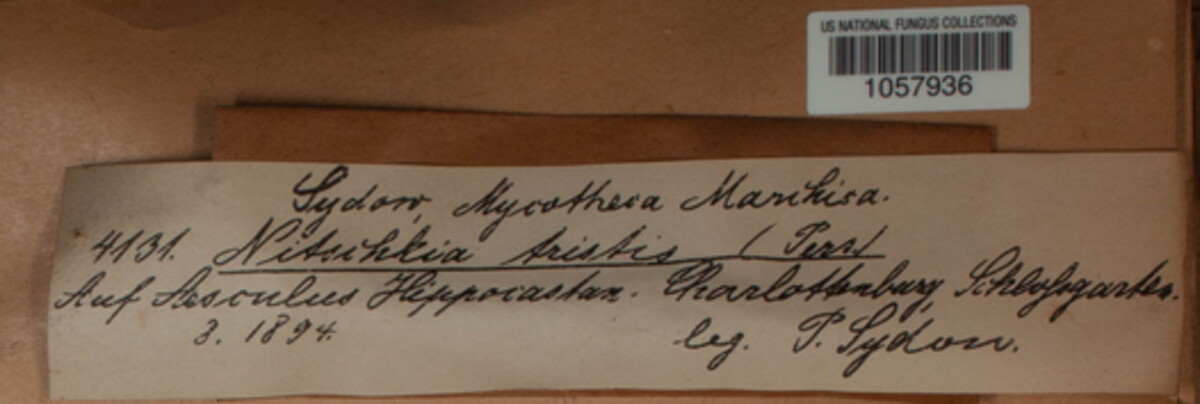 US NATIONAL FUNGUS COLLECTIONS
1057936
Sydow, Mycotheca Marchica.
4131. Nitschkia tristis (Pers)
Auf Aesculus Hippocastan. Charlottenburg, Schloßgarten.
3. 1894. leg. P. Sydow.